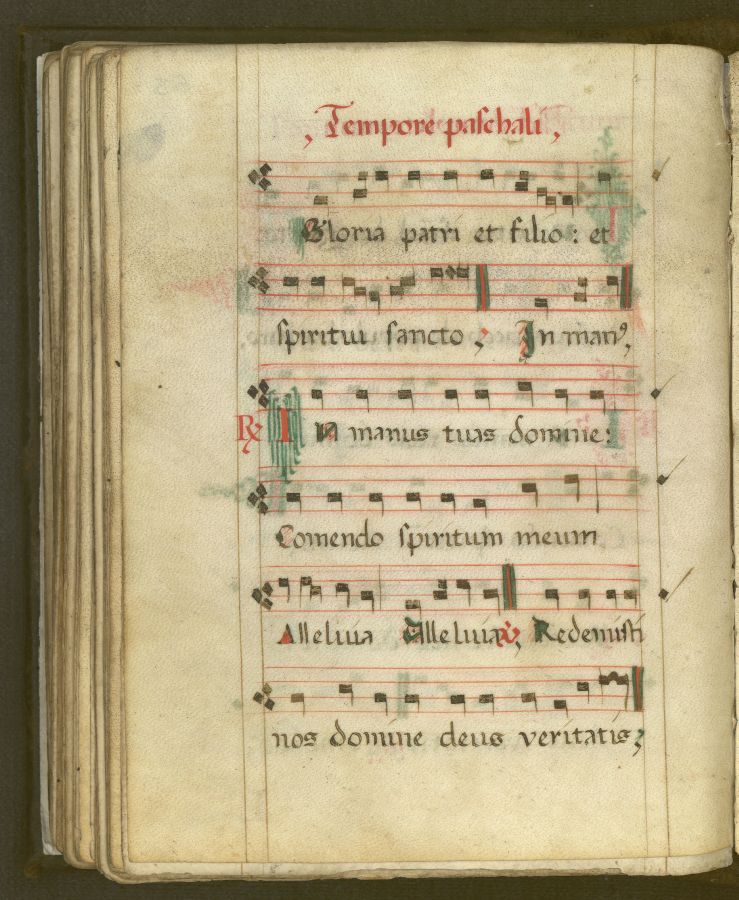 , Tempore paschali ,
Gloria patri et filio : et
spiritui sancto , In manꝰ,
℟ In manus tuas domine:
Comendo spiritum meum
Alleluia Alleluia, ℣, Redemisti
nos domine deus veritatis;